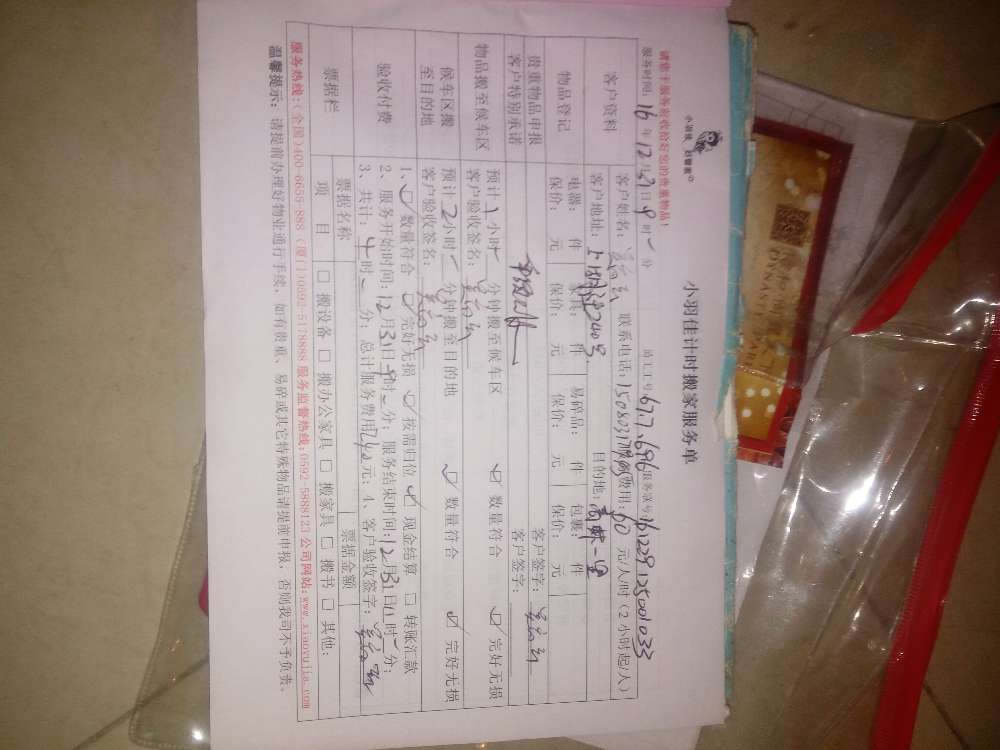 请您于服务验收前好您的贵重物品!
小羽佳计时搬家服务单
服务时间: 16年12月31日9时 分
员工工号: 677.696 服务联号: 161229125001033
客户资料
客户姓名: 联系电话: 服务费用: 60元/人/时(2小时起/人)
客户地址: 目的地:
物品登记
电器: 件 家具: 件 易碎品: 件 包裹: 件
保价: 元 保价: 元 保价: 元 保价: 元
贵重物品申报
客户特别承诺
客户签字:
客户签字:
物品搬至候车区
预计1小时 分钟搬至候车区 ☑ 数量符合 ☑ 完好无损
客户验收签名:
候车区搬至目的地
预计2小时 分钟搬至目的地 ☑ 数量符合 ☑ 完好无损
客户验收签名:
验收付费
1、☑ 数量符合 ☑ 完好无损 ☑ 按需归位 ☑ 现金结算 □ 转账汇款
2、服务开始时间:12月31日9时 分; 服务结束时间:12月31日 时 分;
3、共计:4时 分; 总计服务费用 元; 4、客户验收签字:
票据栏
票据名称 票据金额
项目 □ 搬设备 □ 搬办公家具 □ 搬家具 □ 搬书 □ 其他:
服务热线:(全国)400-6655-888 (厦门)0592-5178888 服务监督热线:0592-5888123 公司网站:www.xiaoyujia.com
温馨提示: 请提前办理好物业通行手续, 如有贵重、易碎或其它特殊物品请提前申报, 否则我司不予负责。
DYNASTY